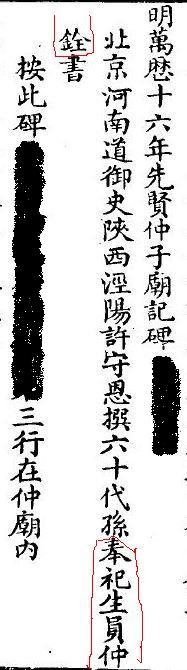 明萬歷十六年先賢仲子廟記碑
北京河南道御史陝西涇陽許守恩撰六十代孫奉祀生員仲
銓書
按此碑
三行在仲廟內